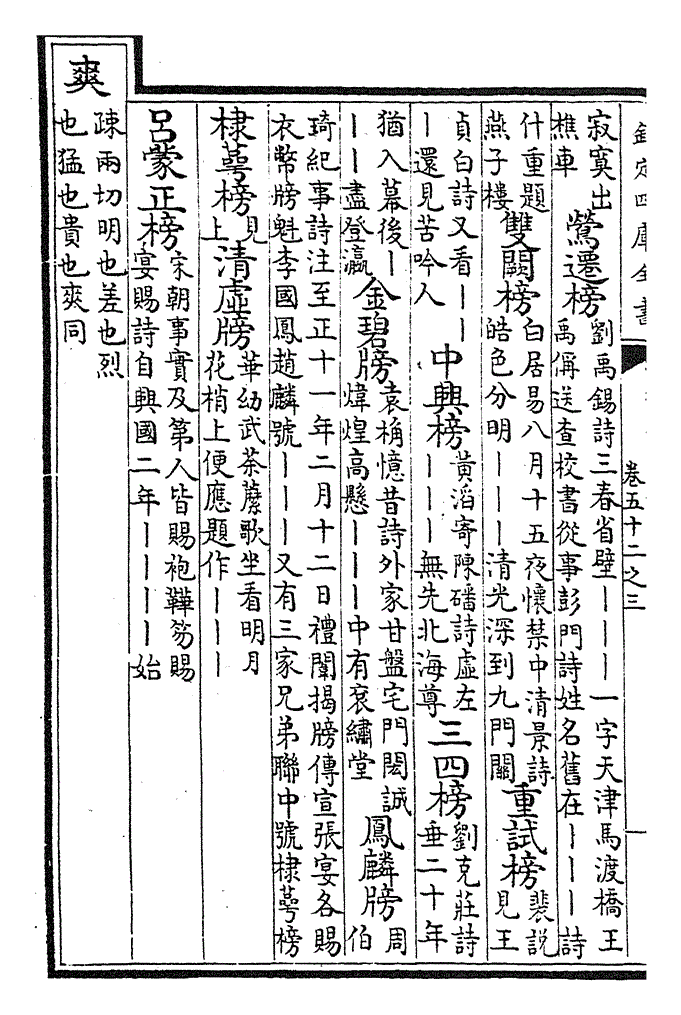 欽定四庫全書 卷五十二之三 一
寂寞出
樵車
鶯遷榜
劉禹錫詩三春省壁丨丨丨一字天津馬渡橋王
禹偁送查校書從事彭門詩姓名舊在丨丨丨詩
什重題
燕子樓
雙闕榜
白居易八月十五夜懷禁中清景詩
皓色分明丨丨丨清光深到九門關
重試榜
裴說
見王
貞白詩又看丨丨
丨還見苦吟人
中興榜
黃滔寄陳磻詩虛左
丨丨丨無先北海尊
三四榜
劉克莊詩
垂二十年
猶入幕後丨
丨丨盡登瀛
金碧牓
袁桷憶昔詩外家甘盤宅門閎誠
煒煌高懸丨丨丨中有衮繡堂
鳳麟牓
周
伯
琦紀事詩注至正十一年二月十二日禮闈揭牓傳宣張宴各賜
衣幣牓魁李國鳳趙麟號丨丨丨又有三家兄弟聯中號棣萼榜
棣萼榜
見
上
清虛牓
華幼武荼蘪歌坐看明月
花梢上便應題作丨丨丨
呂蒙正榜
宋朝事實及第人皆賜袍鞾笏賜
宴賜詩自興國二年丨丨丨丨始
爽
疎兩切明也差也烈
也猛也貴也爽同